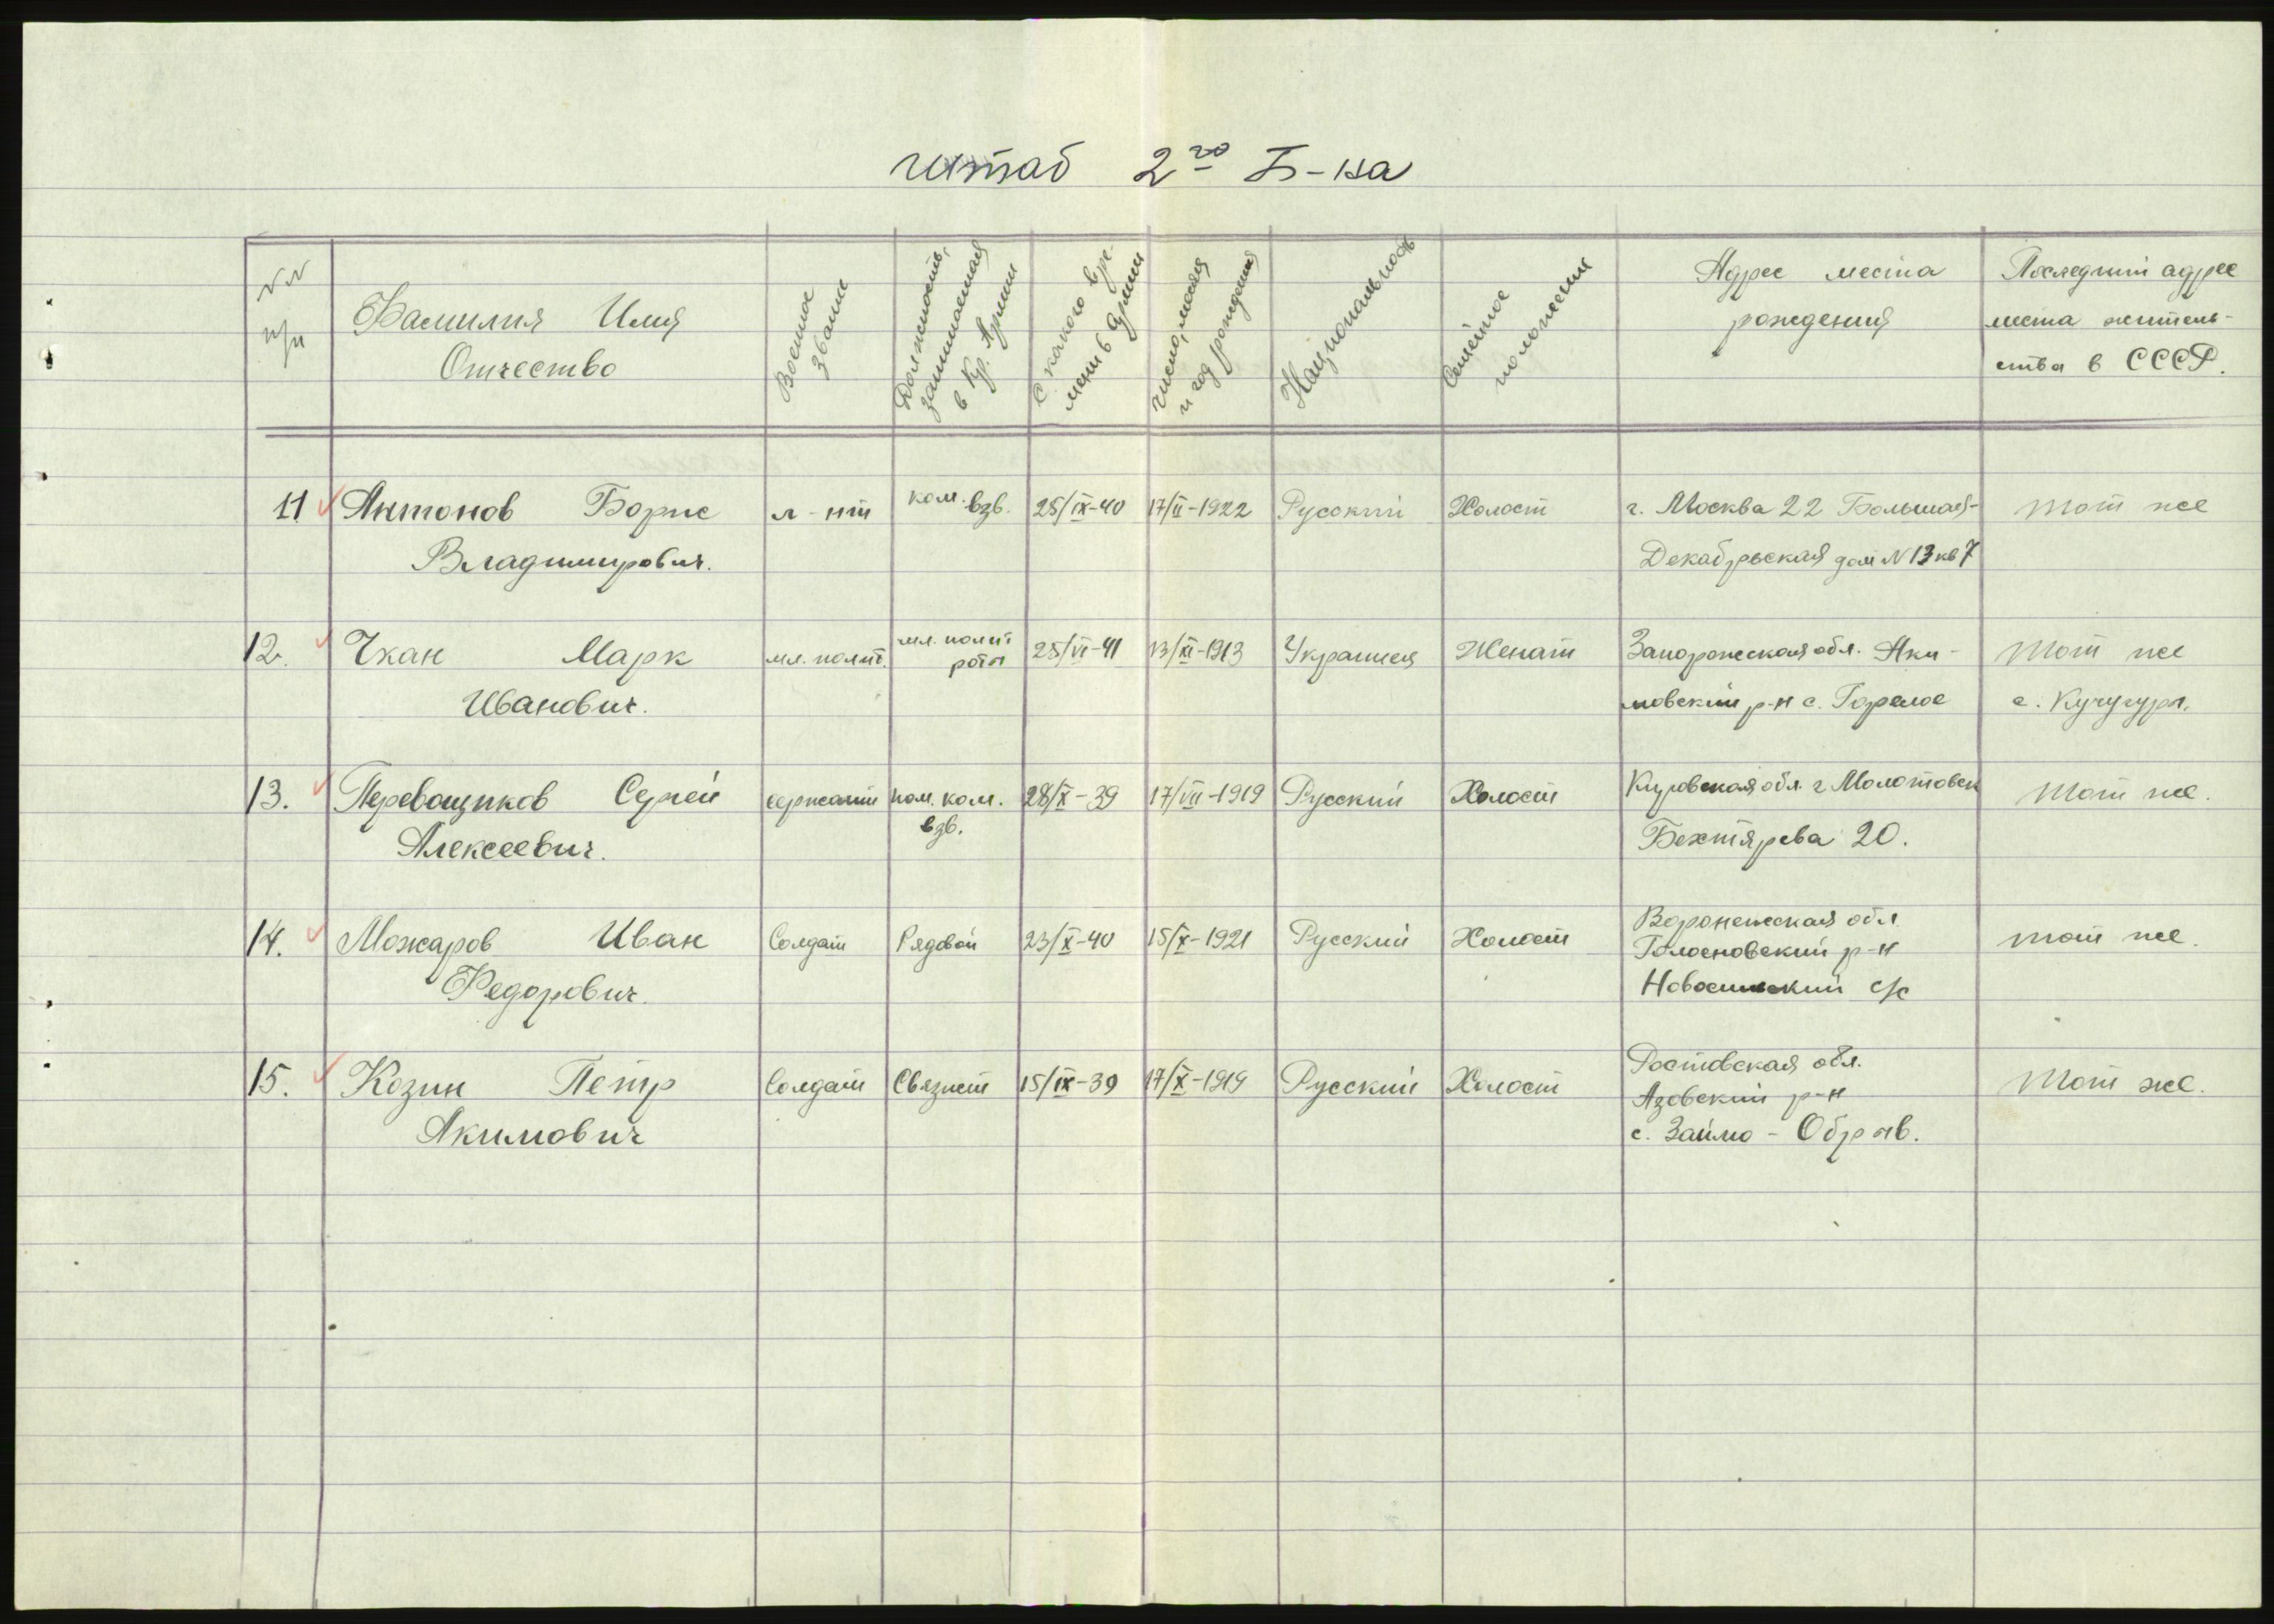 штаб 2го Б-на
№№ п/п
Фамилия Имя
Отчество
Военное
звание
Должность,
занимаемая
в Кр. Армии
С какого вре-
мени в Армии
число, месяц
и год рождения
Национальность
Семейное
положение
Адрес места
рождения
Последний адрес
места житель-
ства в СССР.
11 Антонов Борис л-нт ком. взв. 25/IX-40 17/II-1922 Русский Холост г. Москва 22 Большая- тот же
Владимирович. Декабрьская дом N 13 кв 7
12. Чкан Марк мл. полит. мл. полит 25/VI-41 13/XI-1913 Украинец Женат Запорожская обл. Аки- тот же
роты
Иванович. мовский р-н с. Горелое с. Кучугуры.
13. Перевощиков Сергей сержант пом. ком. 28/X-39 17/VII-1919 Русский Холост Кировская обл. г Молотовск тот же.
взв.
Алексеевич. Бехтярева 20.
14. Можаров Иван Солдат Рядовой 23/X-40 15/X-1921 Русский Холост Воронежская обл тот же.
р-н
Федорович. с/с
15. Козин Петр Солдат Связист 15/IX-39 17/X-1919 Русский Холост Ростовская обл. тот же.
Азовский р-н
Акимович с. Займо-Обрыв.